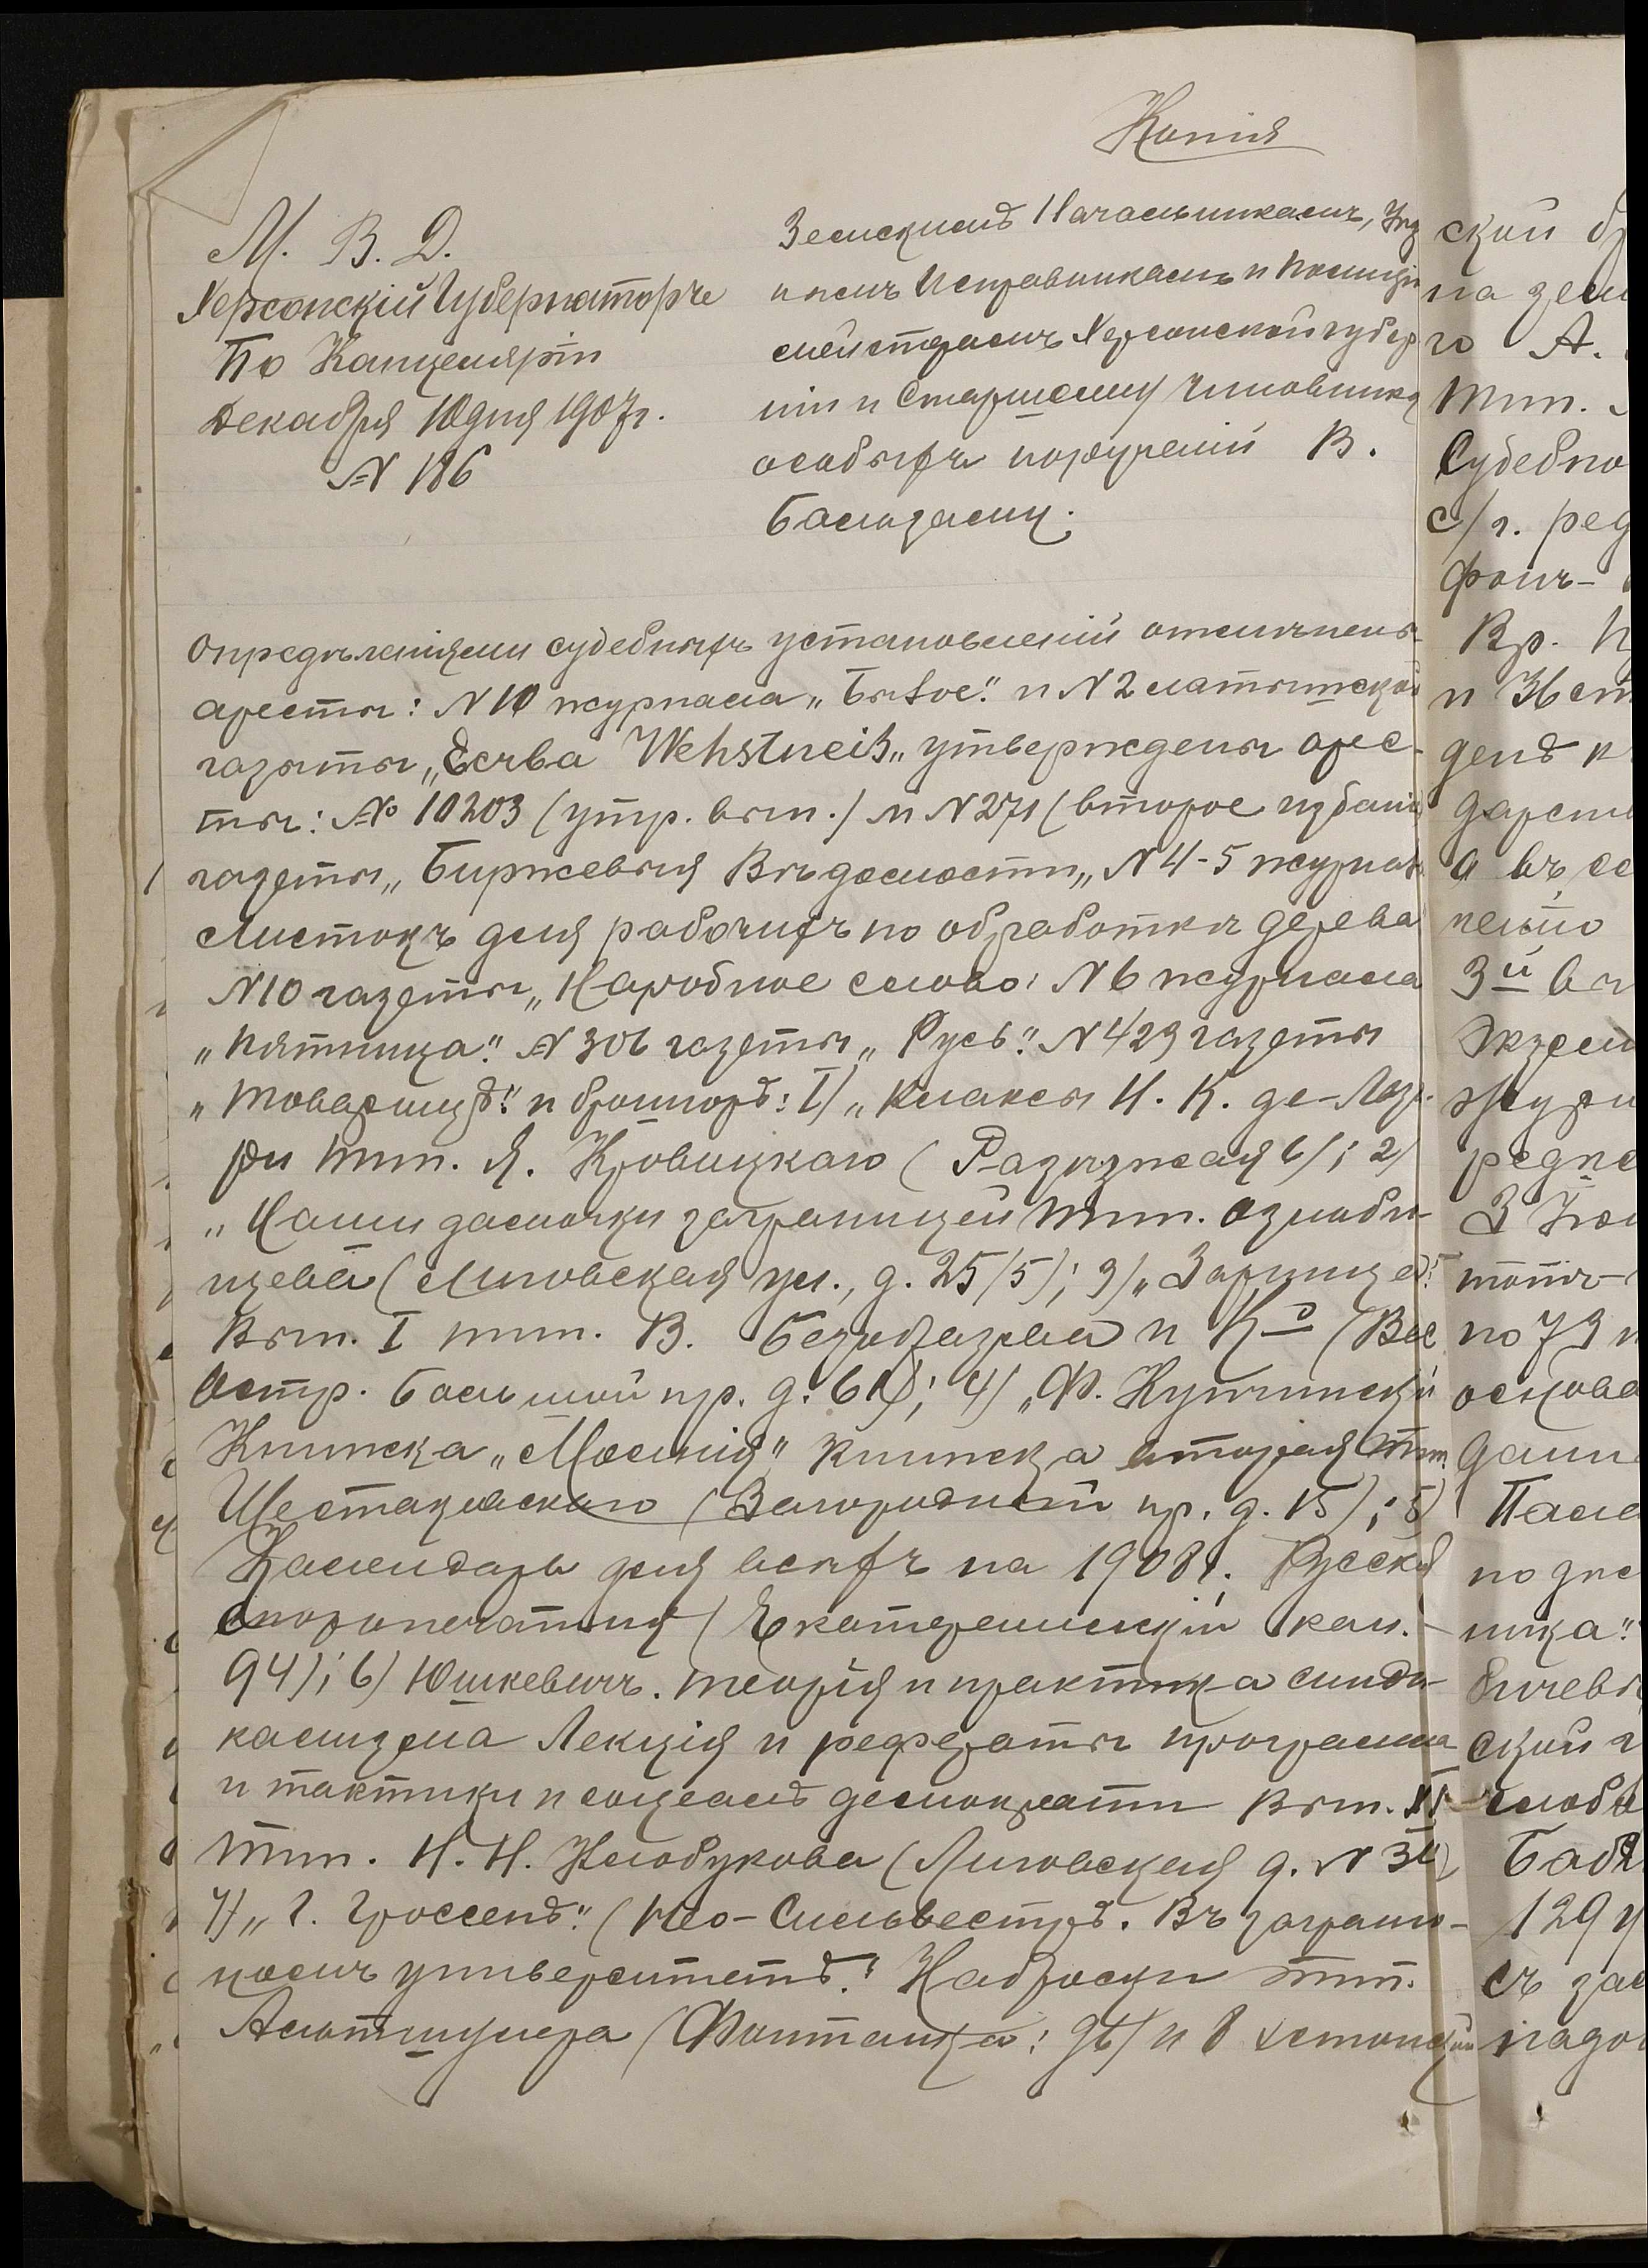 Копія
М. В. Д.
Херсонскій Губернаторъ
По Канцеляріи
Декабря 10 дня 1907 г.
№ 186
Земскимъ Начальникамъ, Уѣзд
нымъ Исправникамъ и Полиці
мейстерамъ Херсонской губер
ніи и Старшему Чиновнику
особыхъ порученій В.
Бальзаму.
Опредѣленіями судебныхъ установленій отмѣнены
аресты: N 10 журнала „Былое." и N 2 латышской
газеты „ Wehstneis„ утверждены арес-
ты: № 10203 (утр. вып.) и N 271 (второе изданіе
газеты „Биржевыя Вѣдомости„ N 4-5 журнал
Листокъ для рабочихъ по обработкѣ дерева
N 10 газеты „Народное слово: N 6 журнала
„Пятница." N 306 газеты „Русь." N 429 газеты
„Товарищъ." и брошюръ: 1) „Кляксы Н. К. де-Лаз-
ри тип. Я. Кровицкаго (Разъѣзжая 6); 2)
„Наши дамочки заграницей тип. Ознобы-
щева (Лиговская ул., д. 25/5); 3) „Зарницы."
Вып. I тип. В. Безобразова и Кº (Вас
Остр. Большой пр. д. 61); 4) „Ф. Купчинскій
Книжка „Молнія" книжка вторая тип.
Шестаковскаго (Загородный пр. д. 15); 5)
Календарь для всѣхъ на 1908 г. Русская
скоропечатня (Екатерининскій кан.-
94); 6) Юшкевичъ. Теорія и практика синди-
кализма Лекція и рефераты программа
и тактики и соціалъ демократіи Вып.
тип. Н. Н. Клобукова (Лиговская д. N 34)
7) „Г. Гроссенъ." (Нео-Сильвестръ. Въ загранич-
номъ университетѣ." Наброски тип.
Альтшулера (Фонтанка: 96) и 8 эстонскій
ской
на зем
го А.
тип.
Судебно
с/г. ред
Вр.
и
денъ к
дарств
а въ
3й вы
Экзем
журн
ред
по 79
основа
дан
Пала
по дѣл
ника."
ской г
129 у
съ за